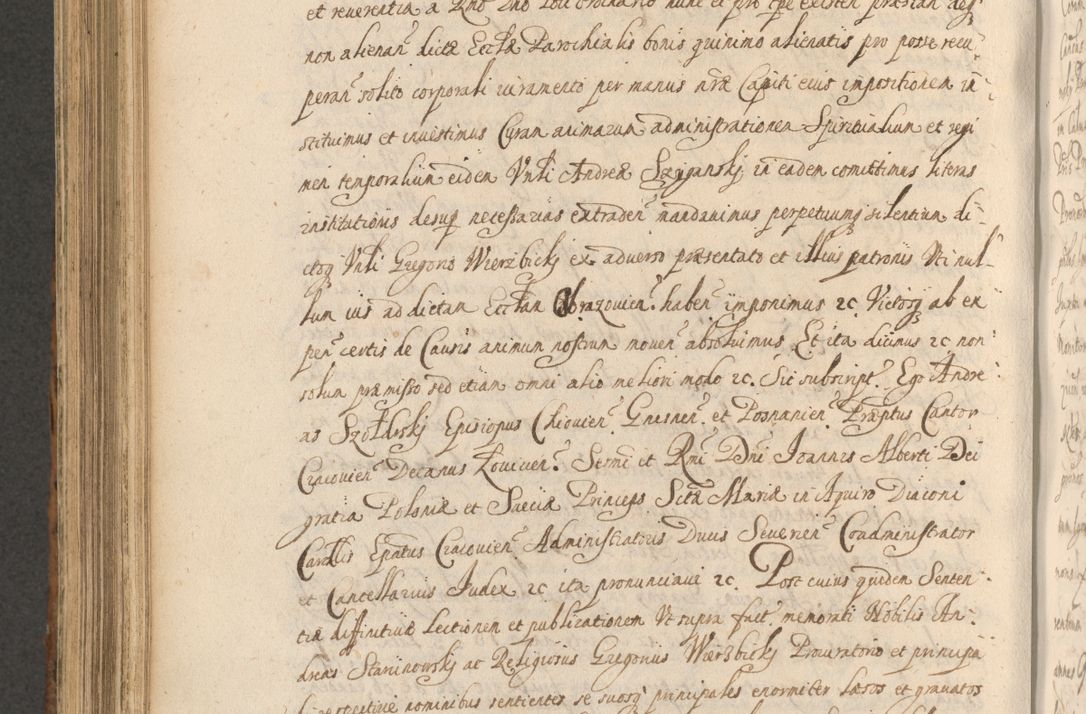 et reuerentia a Rno Dno Loci ordinario nunc et pro tpe existen præstan deq
non alienan dictæ Ecclæ Parochialis bonis quinimo alienatis pro posse recu
peran solito corporali iuramento per manus nræ Capiti eius impositionem in
stituimus et inuestimus Curam animarum administrationem Spiritualium et regi
men temporalium eidem Vnli Andreæ Szyganskj in eadem comittimus literas
institutionis desup necessarias extraden mandauimus perpetuumq silentium di
ctoq Vnli Gregorio Wierzbickj ex aduerso præsentato et illius patronis Vti nul
lum ius ad dictam Ecclam Obrazouien haben imponimus 2c Victosq ab ex
pen certis de Causis animum nostrum mouen absoluimus Et ita dicimus 2c non
solum præmisso sed etiam omni alio meliori modo 2c. Sic subscript. Ego Andre
as Szołdrskj Episiopus Chiouien Gnesnen et Posnanien Præptus Cantor
Cracouien Decanus Louicien. Sermi et Rmi Dni Joannis Alberti Dei
gratia Poloniæ et Sueciæ Princeps Sctæ Mariæ in Aquiro Diaconi
Cardlis Epatus Cracouien Administratoris Ducis Seuerien Coadministrator
et Cancellarius Judex 2c ita pronunciaui 2c. Post cuius quidem Senten
tiæ diffinitiuæ lectionem et publicationem Vt supra fact memorati Nobilis An
dreas Starinowskj ac Religiosus Gregorius Wierzbickj Procuratorio et principa
respectiue nominibus sentientes se suosq principales enormiter læsos et grauatos